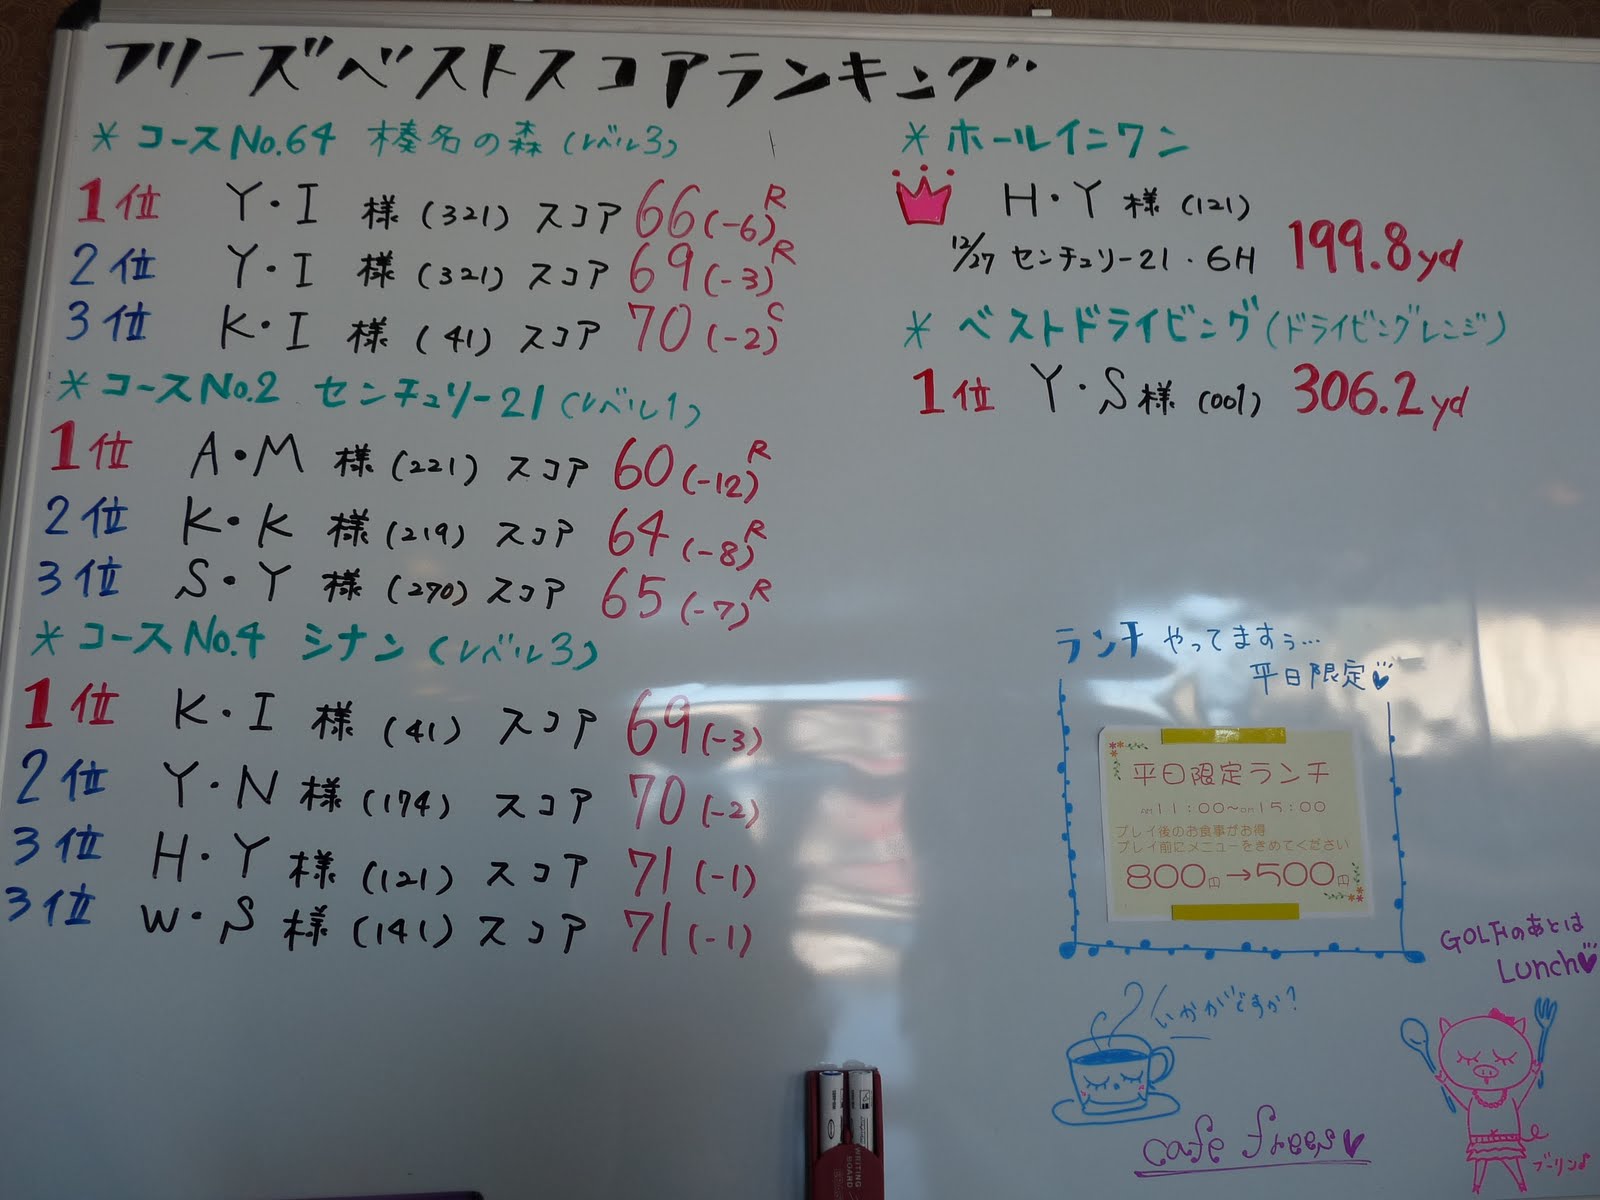 フリーズベストスコアランキング
* コースNo.64 榛名の森(レベル3)
1位 Y・I 様(321)スコア 66(-6)R
2位 Y・I 様(321)スコア 69(-3)R
3位 K・I 様(41)スコア 70(-2)C
* コースNo.2 センチュリー21(レベル1)
1位 A・M 様(221)スコア 60(-12)R
2位 K・K 様(219)スコア 64(-8)R
3位 S・Y 様(270)スコア 65(-7)R
* コースNo.4 シナン(レベル3)
1位 K・I 様(41)スコア 69(-3)
2位 Y・N 様(174)スコア 70(-2)
3位 H・Y 様(121)スコア 71(-1)
3位 W・S 様(141)スコア 71(-1)
* ホールインワン
H・Y 様(121)
12/27 センチュリー21・6H 199.8yd
* ベストドライビング(ドライビングレンジ)
1位 Y・S様(001) 306.2yd
ランチ やってますぅ…
平日限定♡
平日限定ランチ
am11:00~pm15:00
プレイ後のお食事がお得
プレイ前にメニューをきめてください
800円→500円
GOLFのあとは
Lunch♡
いかがですか?
cafe frees♥
ブーリン♪
WRITING
BOARD